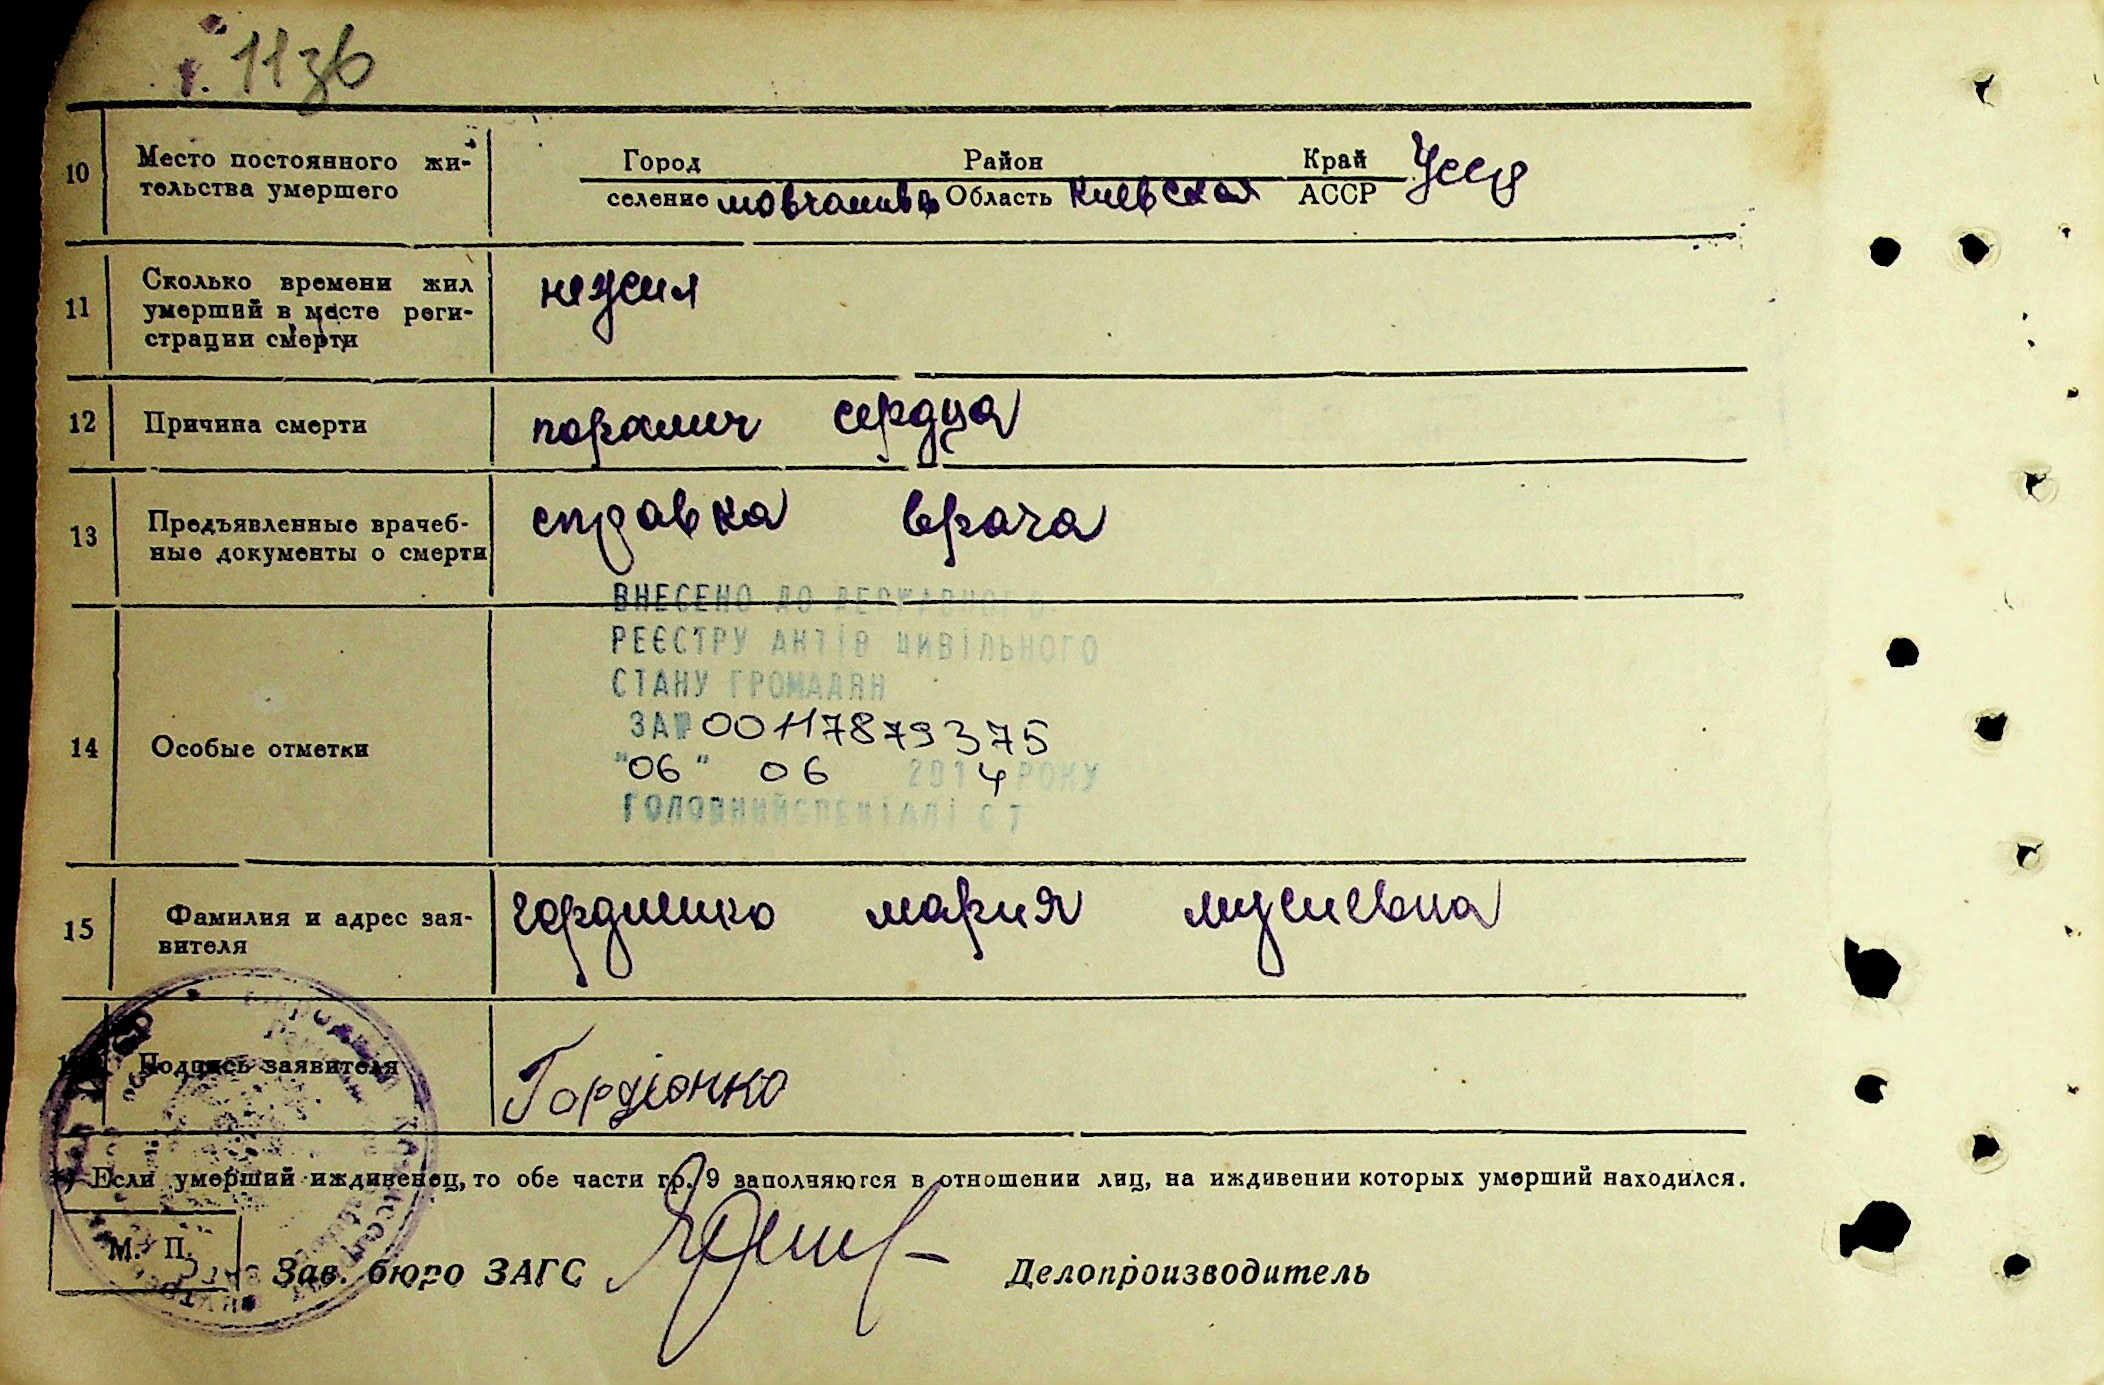 11зв
10 Место постоянного жи- Город Район Край УССР
тельства умершего селение мовчанивка Область Киевская АССР
11 Сколько времени жил
умерший в месте реги-
страции смерти
12 Причина смерти паралич сердца
13 Предъявленные врачеб- справка врача
ные документы о смерти
ВНЕСЕНО ДО ДЕРЖАВНОГО
РЕЄСТРУ АКТІВ ЦИВІЛЬНОГО
СТАНУ ГРОМАДЯН
ЗА № 00117879375
14 Особые отметки
"06" 06 2014 РОКУ
ГОЛОВНИЙ СПЕЦІАЛІСТ
15 Фамилия и адрес зая- гордиенко мария мусиевна
вителя
Подпись заявителя Гордіенко
*) Если умерший иждивенец, то обе части гр. 9 заполняются в отношении лиц, на иждивении которых умерший находился.
М. П.
Зав. бюро ЗАГС Делопроизводитель